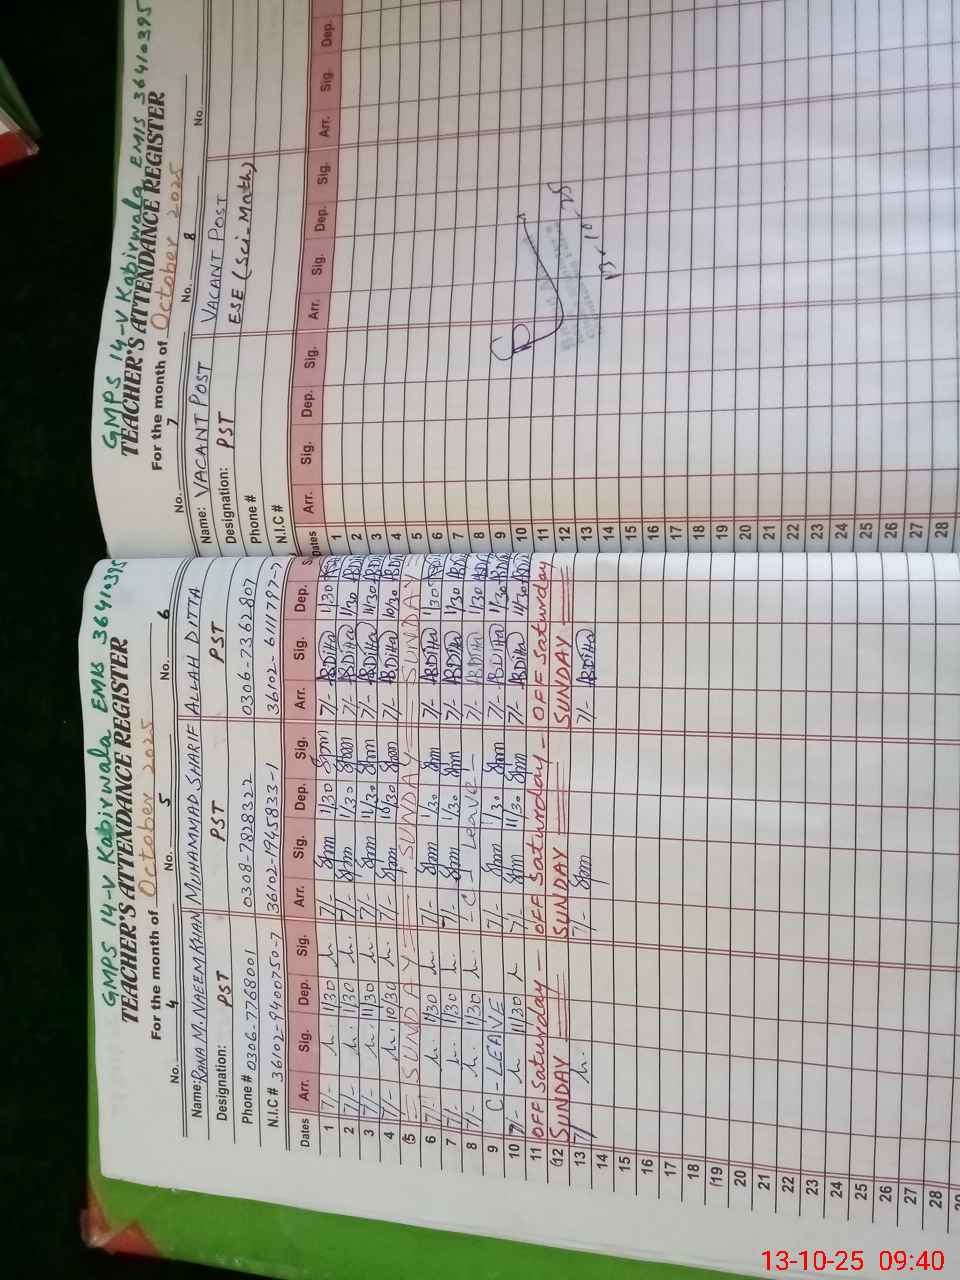 GMPS 14-V Kabirwala EMIS 36410395
TEACHER'S ATTENDANCE REGISTER
For the month of October 2025
No. 4 No. 5 No. 6
Name: RANA M. NAEEM KHAN MUHAMMAD SHARIF ALLAH DITTA
Designation: PST PST PST
Phone # 0306-7768001 0308-7828322 0306-7362807
N.I.C # 36102-9400750-7 36102-1945833-1 36102-6111792-7
Dates Arr. Sig. Dep. Sig. Arr. Sig. Dep. Sig. Arr. Sig. Dep.
1 7/- 1/30 7/- 1/30 7/- ABDitta 1/30
2 7/- 1/30 7/- 1/30 7/- ABDitta 1/30
3 7/- 11/30 7/- 11/30 7/- ABDitta 11/30
4 7/- 10/30 7/- 10/30 7/- ABDitta 10/30
5 SUNDAY SUNDAY SUNDAY
6 7/- 1/30 7/- 1/30 7/- ABDitta 1/30
7 7/- 1/30 7/- 1/30 7/- ABDitta 1/30
8 7/- 1/30 Leave 7/- ABDitta 1/30
9 C-LEAVE 7/- 1/30 7/- ABDitta 11/30
10 7/- 11/30 7/- 11/30 7/- ABDitta 11/30
11 OFF Saturday — OFF Saturday — OFF Saturday
12 SUNDAY SUNDAY SUNDAY
13 7/ 7/- 7/- ABDitta
14
15
16
17
18
19
20
21
22
23
24
25
26
27
28
GMPS 14-V Kabirwala EMIS 36410395
TEACHER'S ATTENDANCE REGISTER
For the month of October 2025
No. 7 No. 8 No.
Name: VACANT POST VACANT POST
Designation: PST ESE (Sci-Math)
Phone #
N.I.C #
Dates Arr. Sig. Dep. Sig. Arr. Sig. Dep. Sig. Arr. Sig. Dep.
1
2
3
4
5
6
7
8
9
10
11
12
13
14
15
16
17
18
19
20
21
22
23
24
25
26
27
28
13-10-25
13-10-25 09:40